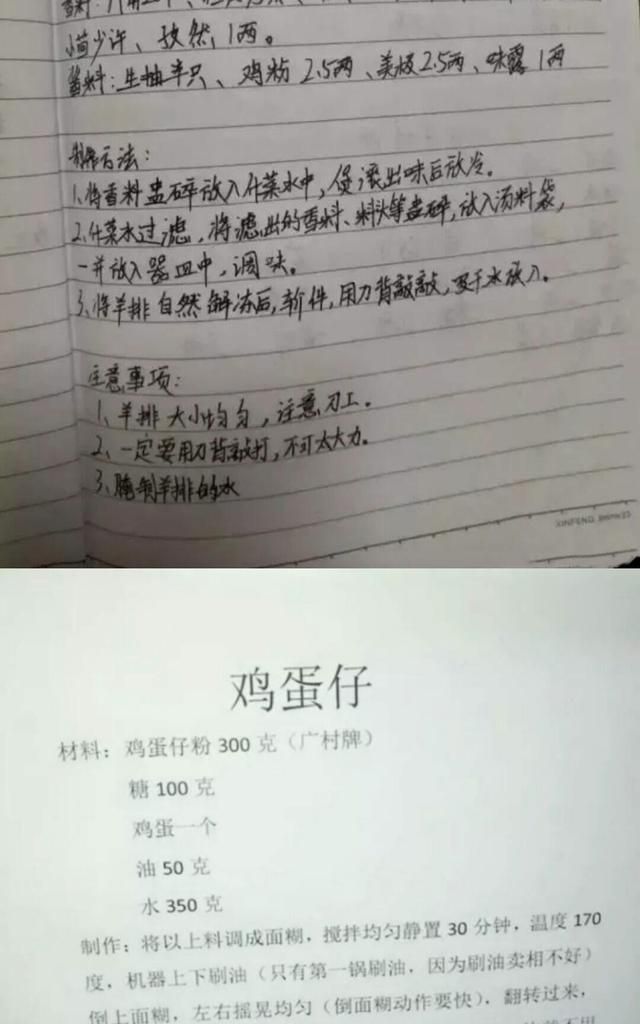 小茴少许、孜然1两。
酱料：生抽半只、鸡粉2.5两、美极2.5两、味露1两
制作方法：
1、将香料盅碎放入什菜水中，煲滚出味后放冷。
2、什菜水过滤，将滤出的香料、料头等盅碎，放入汤料袋，
一并放入器皿中，调味。
3、将羊排自然解冻后，软件，用刀背敲敲，吸干水放入。
注意事项：
1、羊排大小均匀，注意刀工。
2、一定要用刀背敲打，不可太大力。
3、腌制羊排的水
XINFENG
鸡蛋仔
材料：鸡蛋仔粉 300 克（广村牌）
糖 100 克
鸡蛋一个
油 50 克
水 350 克
制作：将以上料调成面糊，搅拌均匀静置 30 分钟，温度 170
度，机器上下刷油（只有第一锅刷油，因为刷油卖相不好）
倒上面糊，左右摇晃均匀（倒面糊动作要快），翻转过来，